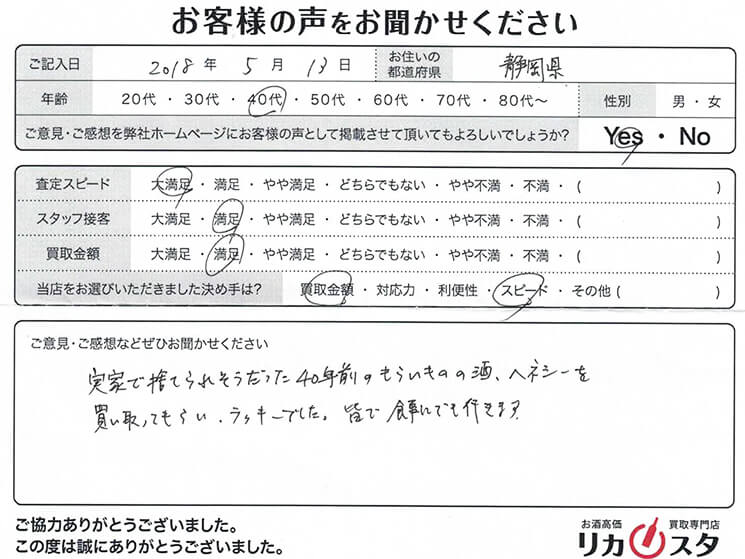 お客様の声をお聞かせください
ご記入日 2018 年 5 月 13 日 お住いの都道府県 静岡県
年齢 20代 ・ 30代 ・ 40代 ・ 50代 ・ 60代 ・ 70代 ・ 80代〜 性別 男 ・ 女
ご意見・ご感想を弊社ホームページにお客様の声として掲載させて頂いてもよろしいでしょうか? Yes ・ No
査定スピード 大満足 ・ 満足 ・ やや満足 ・ どちらでもない ・ やや不満 ・ 不満 ・ ( )
スタッフ接客 大満足 ・ 満足 ・ やや満足 ・ どちらでもない ・ やや不満 ・ 不満 ・ ( )
買取金額 大満足 ・ 満足 ・ やや満足 ・ どちらでもない ・ やや不満 ・ 不満 ・ ( )
当店をお選びいただきました決め手は? 買取金額 ・ 対応力 ・ 利便性 ・ スピード ・ その他 ( )
ご意見・ご感想などぜひお聞かせください
実家で捨てられそうだった40年前のもらいものの酒、ヘネシーを
買い取ってもらい、ラッキーでした。皆で食事にでも行きます
ご協力ありがとうございました。
この度は誠にありがとうございました。
お酒高価 買取専門店
リカスタ